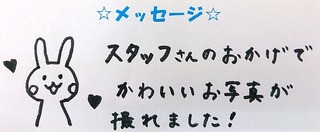 ☆メッセージ☆
スタッフさんのおかげで
かわいいお写真が
撮れました！